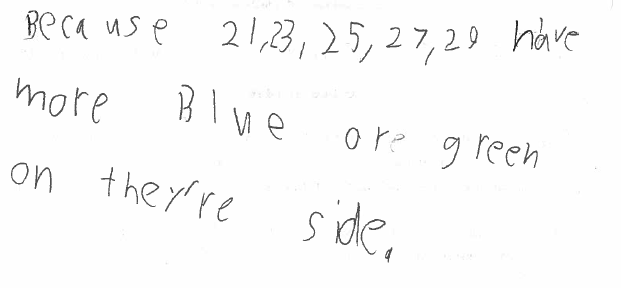 Because 21,23, 25, 27,29 have
more Blue are green
on they're side.